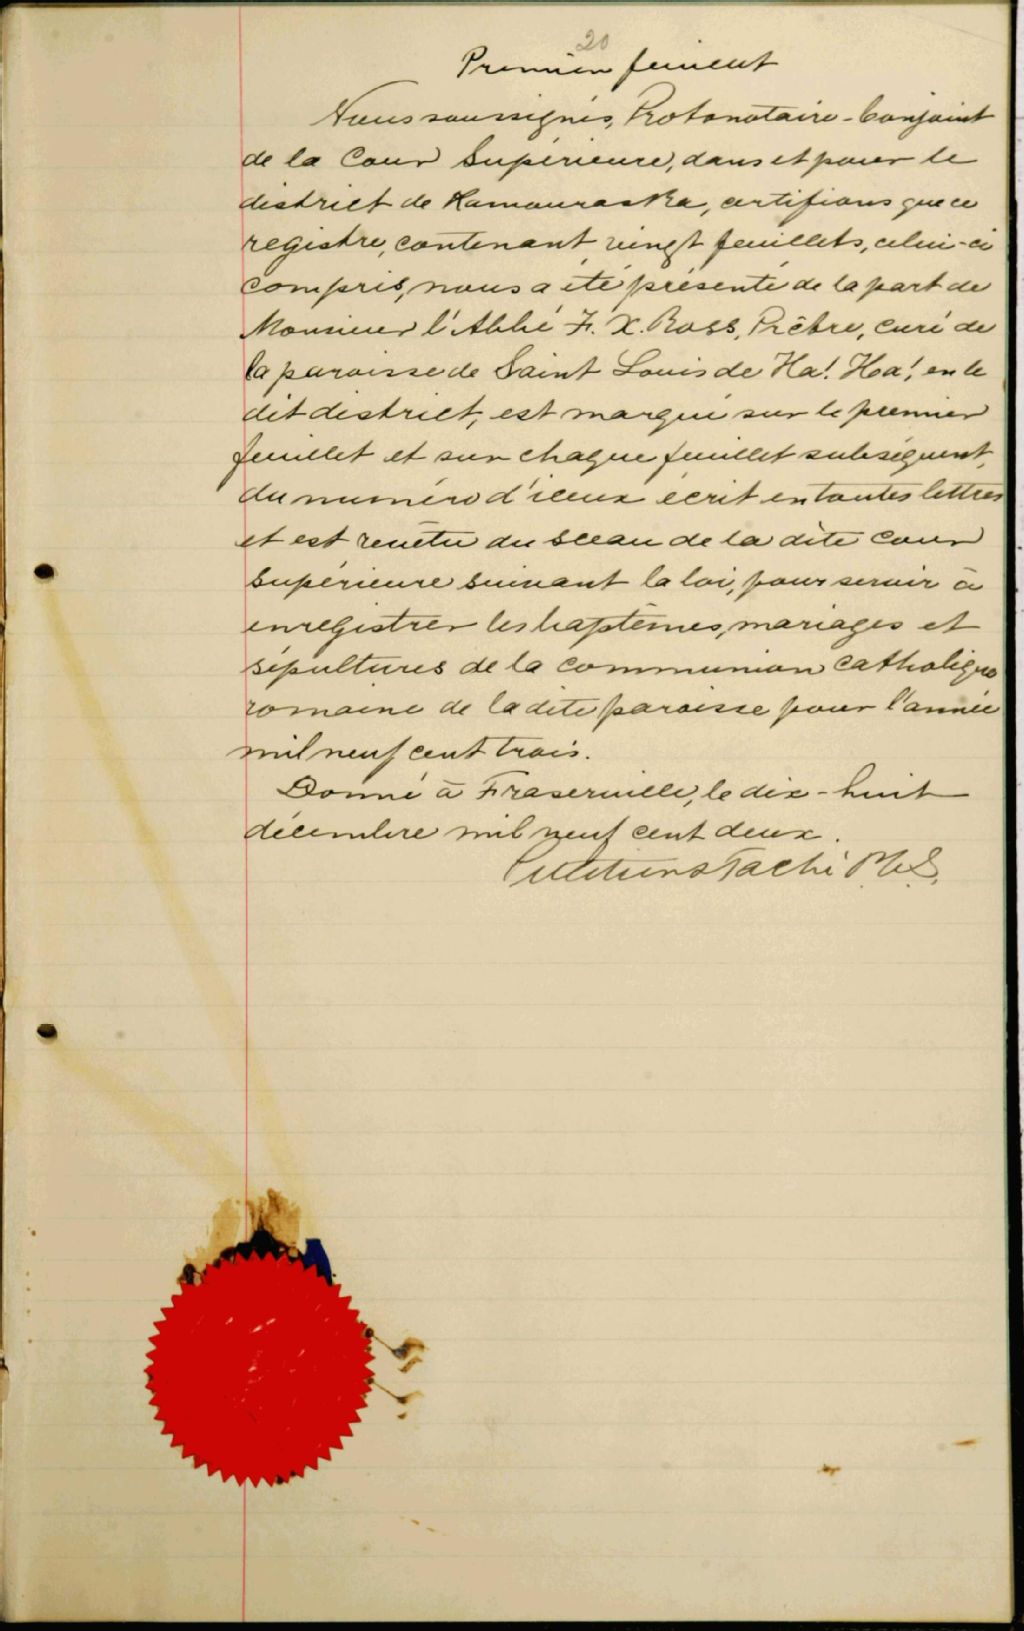 20
Premier feuillet
Nous soussignés, Protonotaire-Conjoint
de la Cour Supérieure, dans et pour le
district de Kamouraska, certifions que ce
registre, contenant vingt feuillets, celui-ci
compris, nous a été présenté de la part de
Monsieur l'Abbé F. X. Ross, Prêtre, curé de
la paroisse de Saint Louis de Ha! Ha!, en le
dit district, est marqué sur le premier
feuillet et sur chaque feuillet subséquent,
du numéro d'iceux écrit en toutes lettres
et est revêtu du sceau de la dite cour
supérieure suivant la loi, pour servir à
enregistrer les baptêmes, mariages et
sépultures de la communion catholique
romaine de la dite paroisse pour l'année
mil neuf cent trois.
Donné à Fraserville, le dix-huit
décembre mil neuf cent deux.
Taché P.C.S.